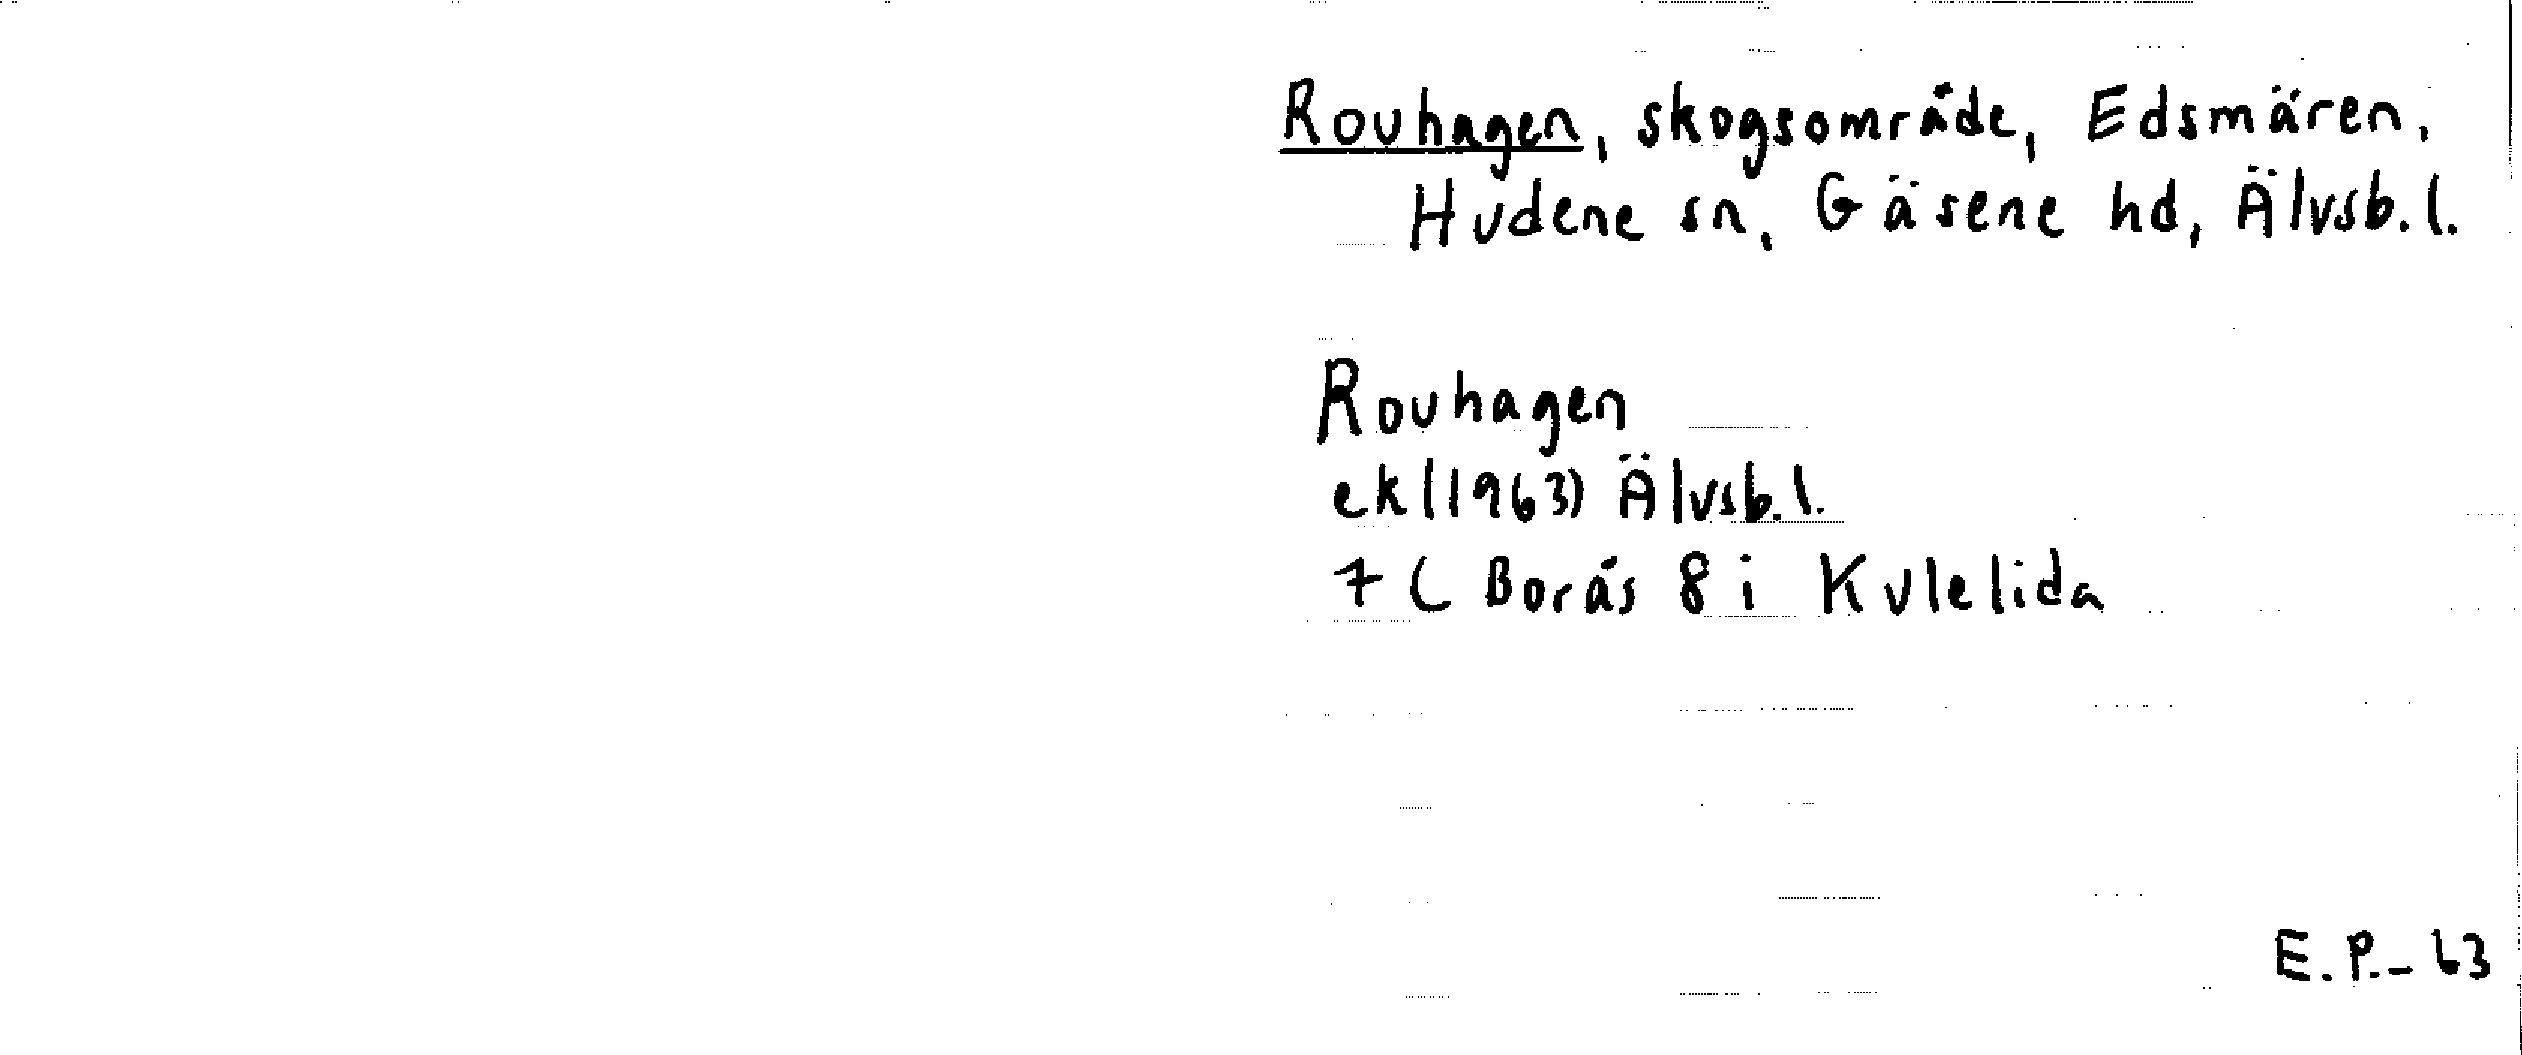 Rouhagen, skogsområde, Edsmären,
Hudene sn, Gäsene hd, Älvsb.l.
Rouhagen
ek (1963) Älvsb.l.
7 C Borås 8 i Kvlelida
E.P.-63